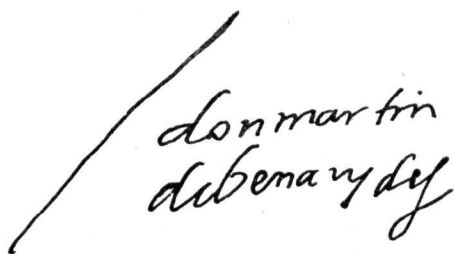 donmartin
debenavydes